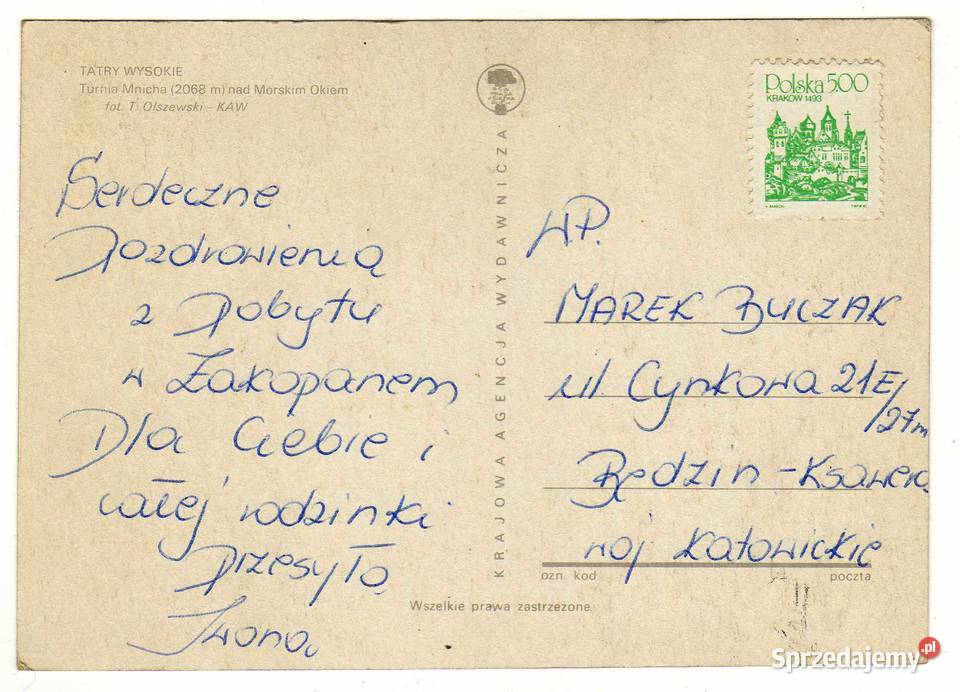 TATRY WYSOKIE
Turnia Mnicha (2068 m) nad Morskim Okiem
fot. T. Olszewski – KAW
Serdeczne
Pozdrowienia
z Pobytu
w Zakopanem
Dla Ciebie i
całej rodzinki
Przesyła
Iwona
KRAJOWA AGENCJA WYDAWNICZA
Polska 5.00
KRAKÓW 1493
W.P.
MAREK BUCZAK
ul. Cynkowa 21E/
/27m
Będzin - Ksawera
woj Katowickie
ozn. kod
poczta
Wszelkie prawa zastrzeżone
Sprzedajemy.pl